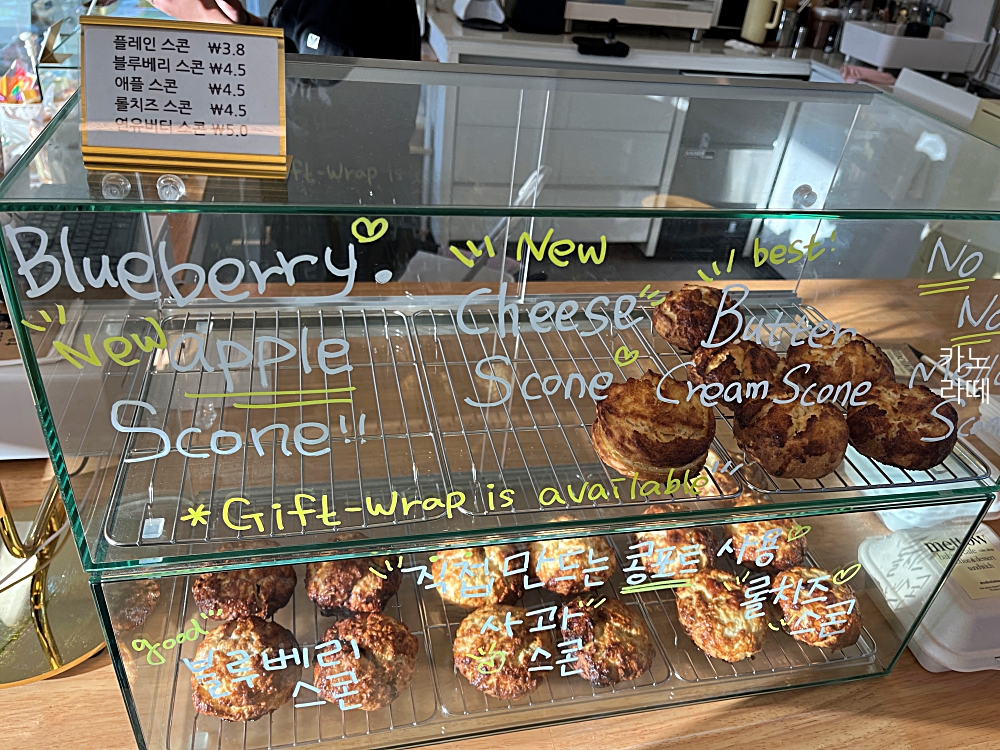 플레인 스콘 ₩3.8
블루베리 스콘 ₩4.5
애플 스콘 ₩4.5
롤치즈 스콘 ₩4.5
연유버터 스콘 ₩5.0
Blueberry.
New apple
Scone!!
New
Cheese
Scone
best!
Butter
Cream Scone
No
No
카노
라떼
* Gift-Wrap is available
직접 만드는 콩포트 사용
good
블루베리
스콘
사과
스콘
롤치즈
스콘